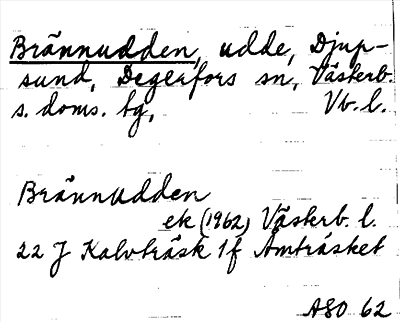 Brännudden, udde, Djup-
sund, Degerfors sn, Västerb.
s. doms. bg, Vb. l.
Brännudden
ek (1962) Västerb. l.
22 J Kalvträsk 1f Åmträsket
ASO 62